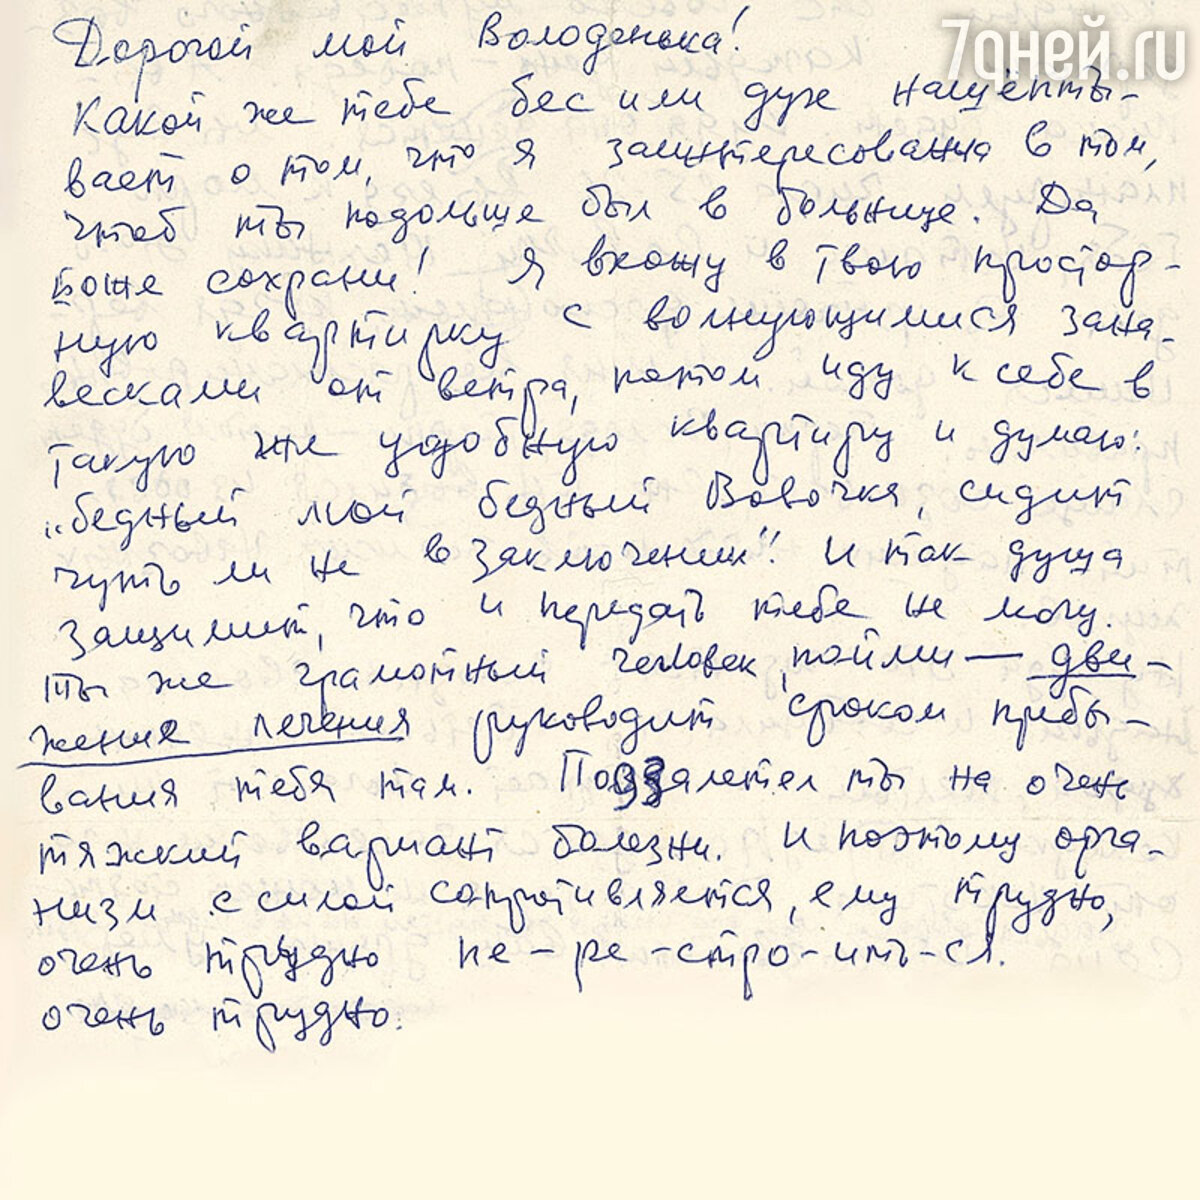 7дней.ru
Дорогой мой Володенька!
Какой же тебе бес или дух нашёпты-
вает о том, что я заинтересованна в том,
чтоб ты подольше был в больнице. Да
Боже сохрани! Я вхожу в твою простор-
ную квартирку с волнующимися зана-
весками от ветра, потом иду к себе в
такую же удобную квартиру и думаю:
„бедный мой бедный Вовочка, сидит
чуть ли не в заключении“! И так душа
защимит, что и передать тебе не могу.
Ты же грамотный человек, пойми — дви-
жение лечения руководит сроком пребы-
вания тебя там. Подзалетел ты на очень
тяжкий вариант болезни. И поэтому орга-
низм с силой сопротивляется, ему трудно,
очень трудно пе-ре-стро-ить-ся.
очень трудно.